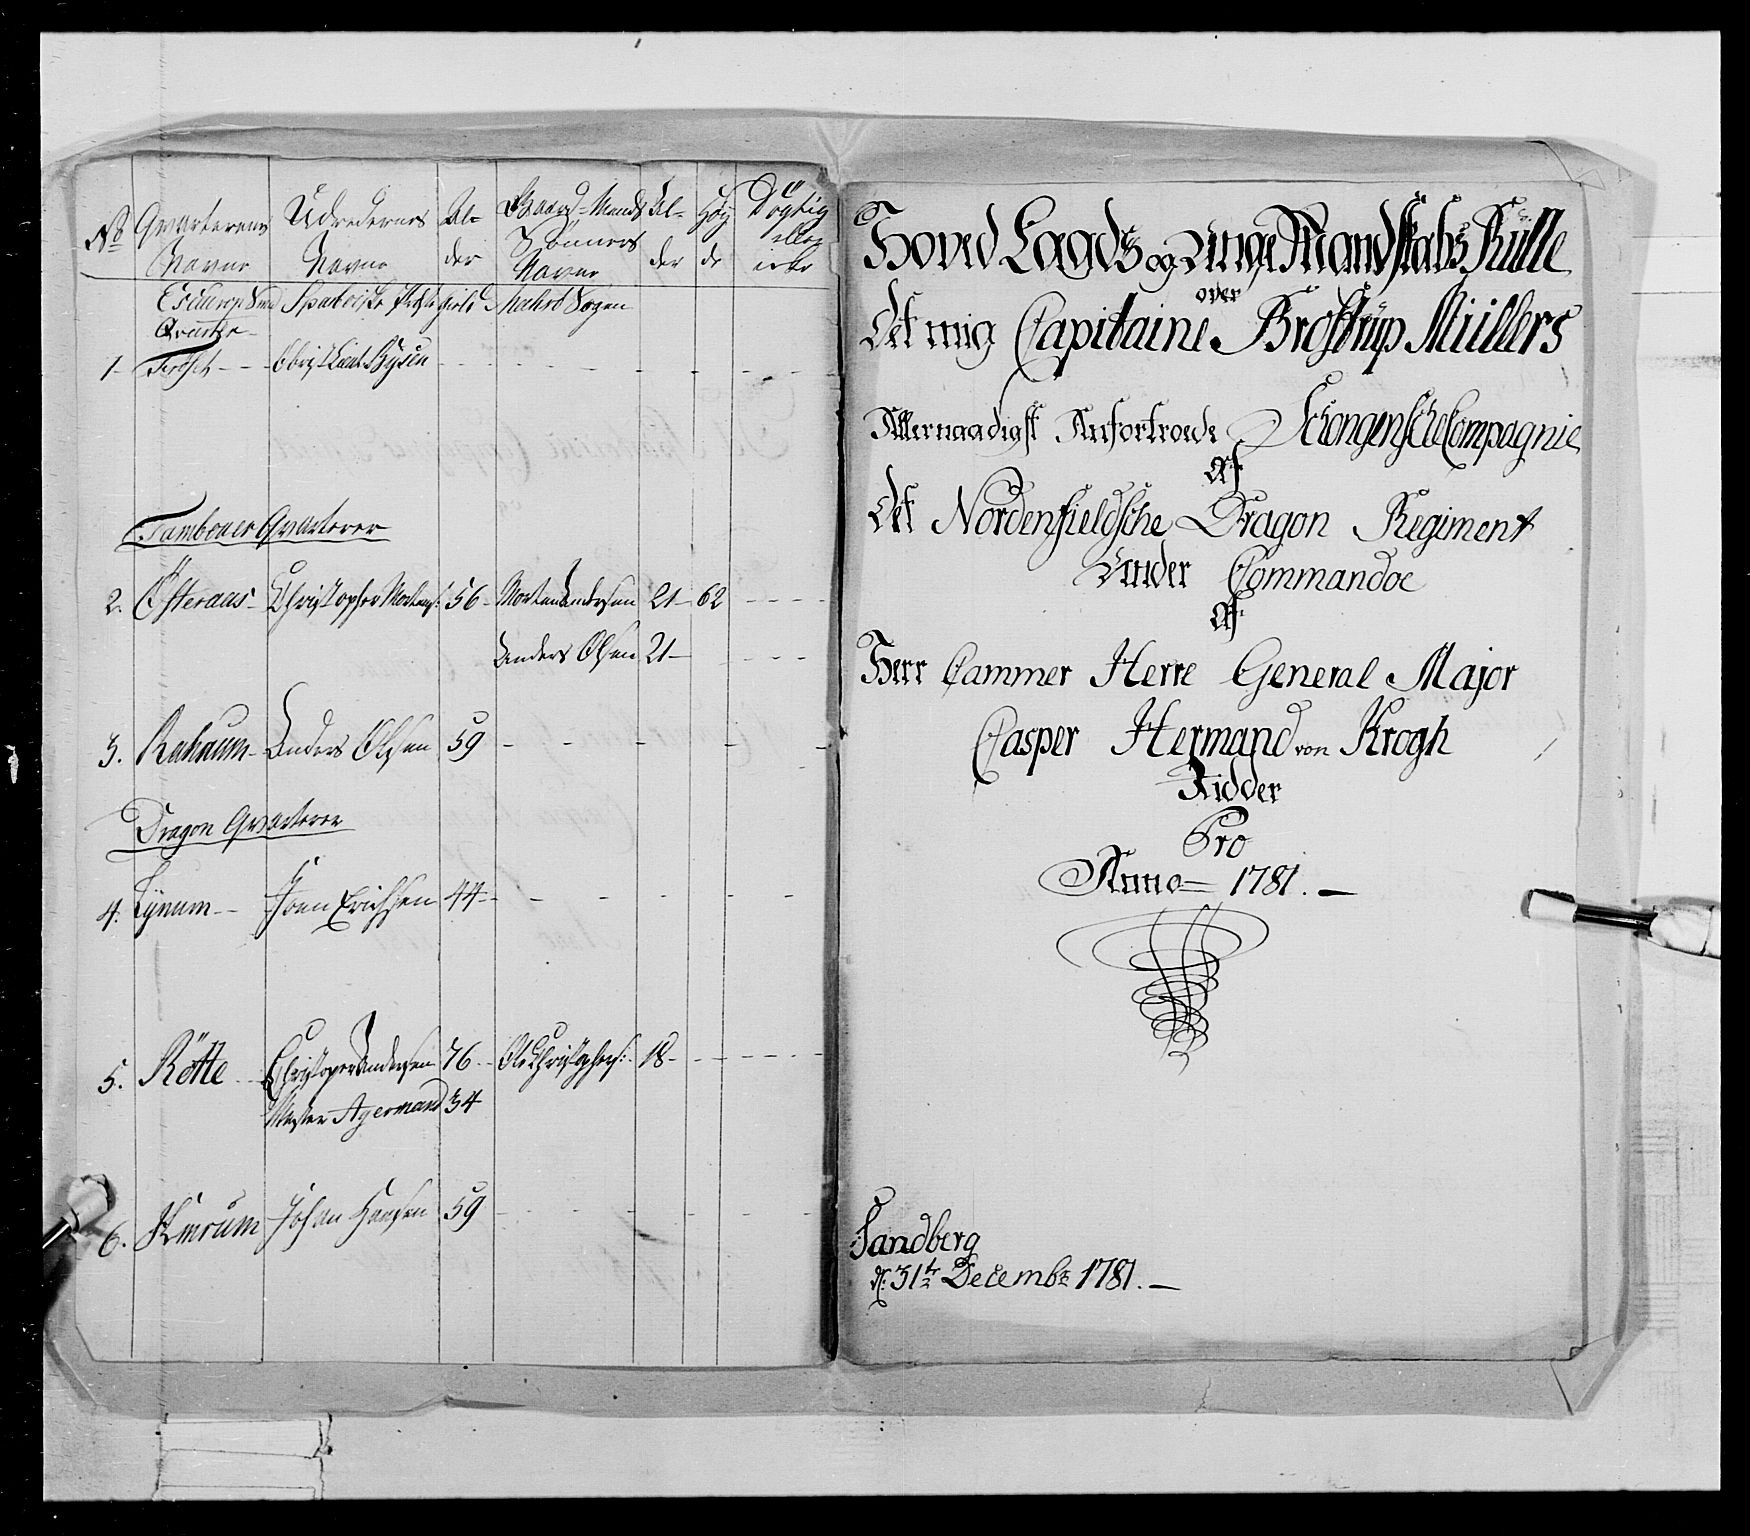 No
Qvarterens
Navne
Udredernes
Navne
Al-
der
Gaard-Mands
Sönners
Navne
Al-
der
Höy
de
Dögtig
eller
ikke
Sparboiske Præstegield Mahrs Sogen
Qvarter
1- - - - Obrist Lieut
Tambouer Qvarterer
2. Österaas- Christopher Mortens: 56- Morten Andersen 21- 62 - - - -
Anders Olsen 21- - - -
3. Rakaum- Anders Olsen 59 - - - - -
Dragon Qvarterer
4. Lynum- - Joen Erichsen 44- - - - - -
5. Rötte - Christoper Andersen 76- Ole Christophers: 18- - - - - -
Mester Agermand 34
6. Hmrum Johan Hansen 59 - - - - -
Hoved Lagds og Unge Mandskabs Rulle
over
Det mig Capitaine Brostrup Müllers
Allernaadigst Anfortroede Schongensche Compagnie
Af
Det Nordenfieldsche Dragon Regiment
Under Commandoe
Af
Herr Cammer Herre General Major
Casper Hermand von Krogh
Ridder
Pro
Anno 1781. -
Sandberg
d: 31te Decembr 1781. -